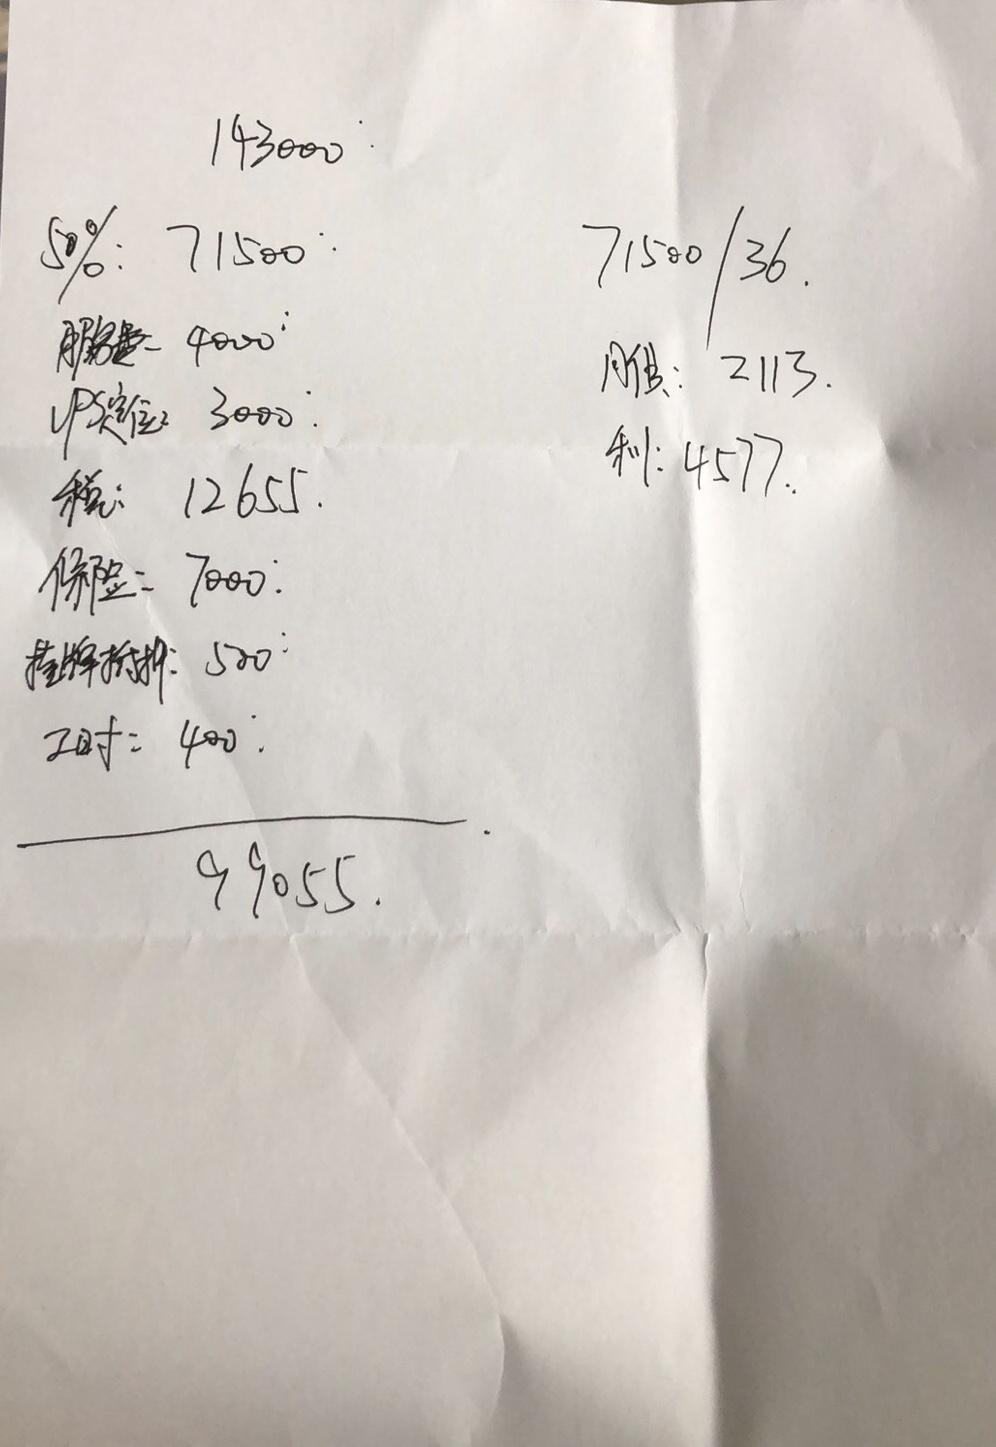 143000
50%: 71500
服务费: 4000
GPS定位: 3000
税: 12655.
保险: 7000
挂牌抵押: 500
工时: 400
99055.
71500/36.
月供: 2113.
利: 4577.